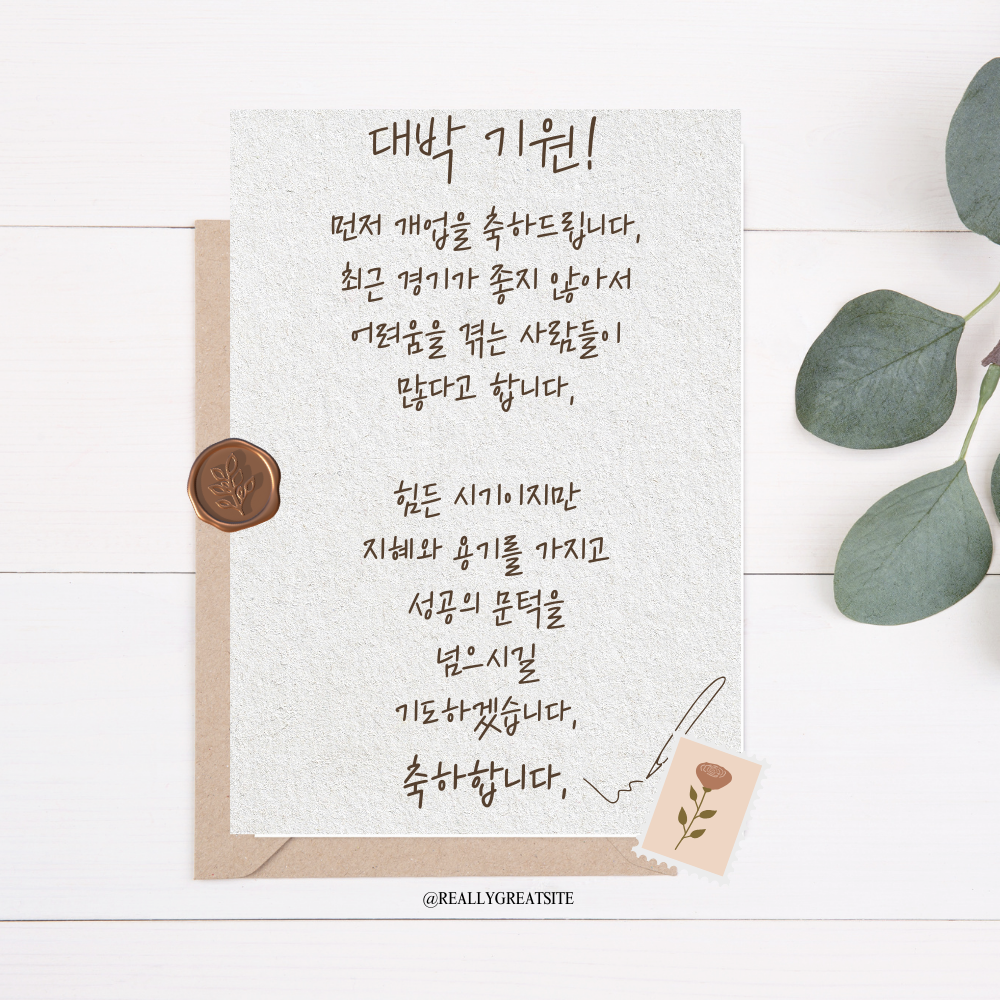 대박 기원!
먼저 개업을 축하드립니다,
최근 경기가 좋지 않아서
어려움을 겪는 사람들이
많다고 합니다,
힘든 시기이지만
지혜와 용기를 가지고
성공의 문턱을
넘으시길
기도하겠습니다,
축하합니다,
@REALLYGREATSITE